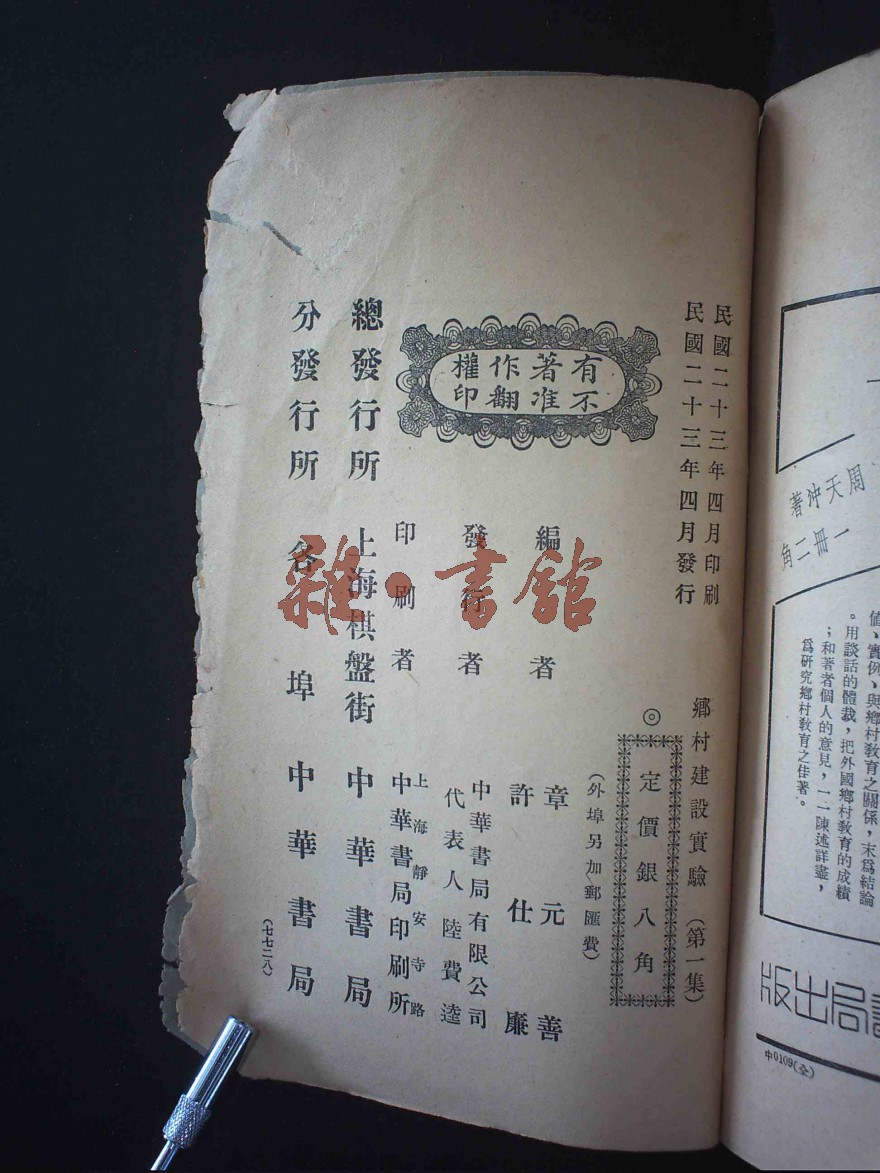 民國二十三年四月印刷
民國二十三年四月發行
鄉村建設實驗（第一集）
◎
定價銀八角
（外埠另加郵匯費）
有著作權
不准翻印
編者
章元善
許仕廉
發行者
中華書局有限公司
代表人陸費逵
印刷者
上海靜安寺路
中華書局印刷所
總發行所 上海棋盤街 中華書局
分發行所 各埠 中華書局
（七七二八）
雜·書館
周天沖著
一冊二角
值、實例、與鄉村教育之關係，末爲結論
。用談話的體裁，把外國鄉村教育的成績
；和著者個人的意見，一一陳述詳盡，
爲研究鄉村教育之佳著。
書局出版
中0109(全)